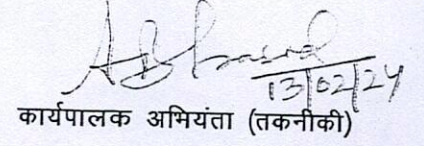 13/02/24
कार्यपालक अभियंता (तकनीकी)